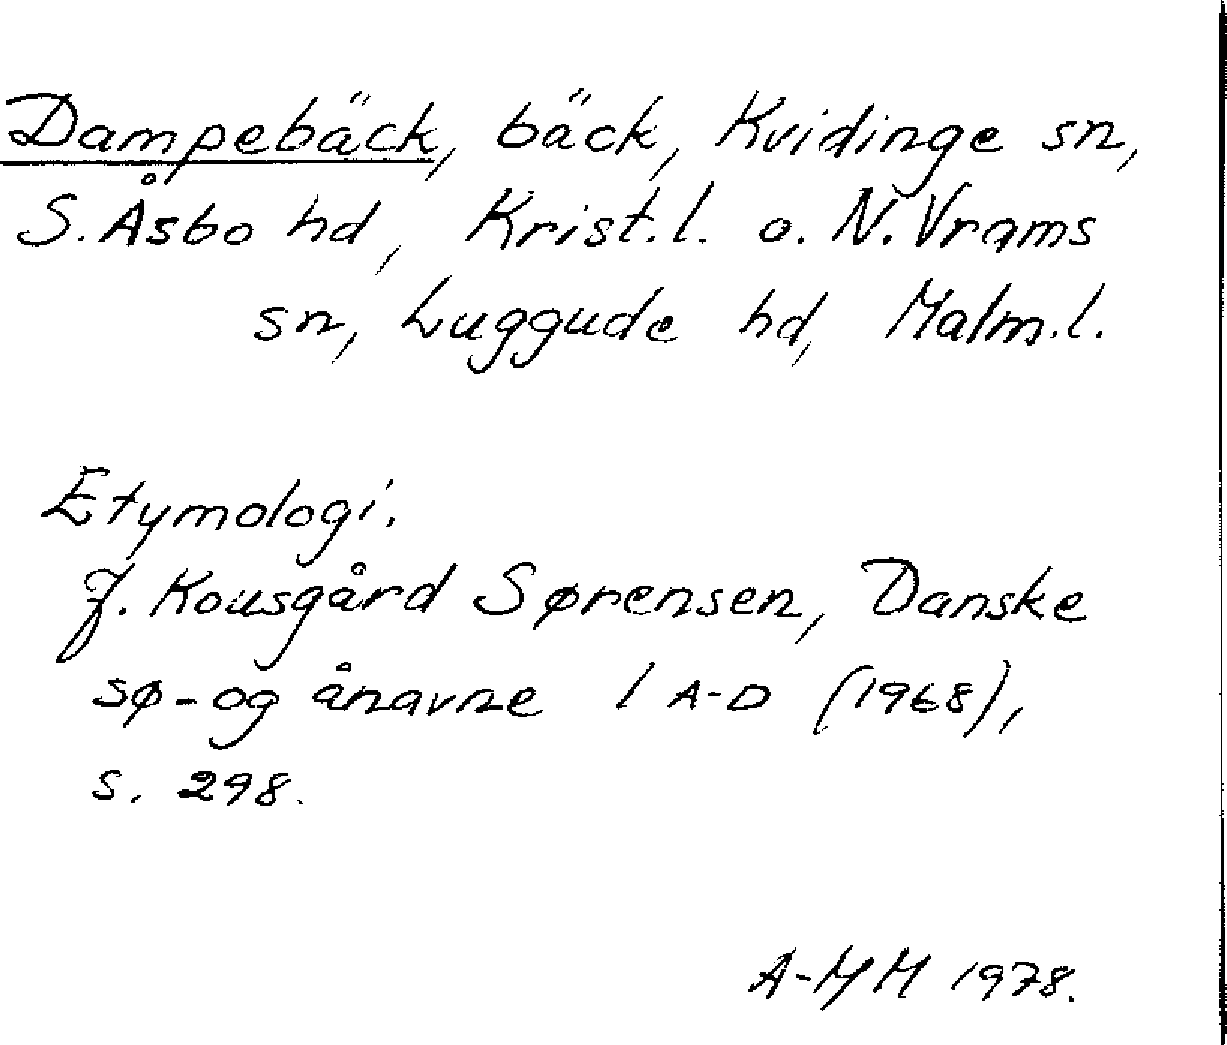 Dampebäck, bäck, Kvidinge sn,
S. Åsbo hd, Krist.l. o. N. Vrams
sn, Luggude hd, Malm.l.
Etymologi.
J. Kousgård Sørensen, Danske
sø- og ånavne 1 A-D (1968),
s. 298.
A-MM 1978.